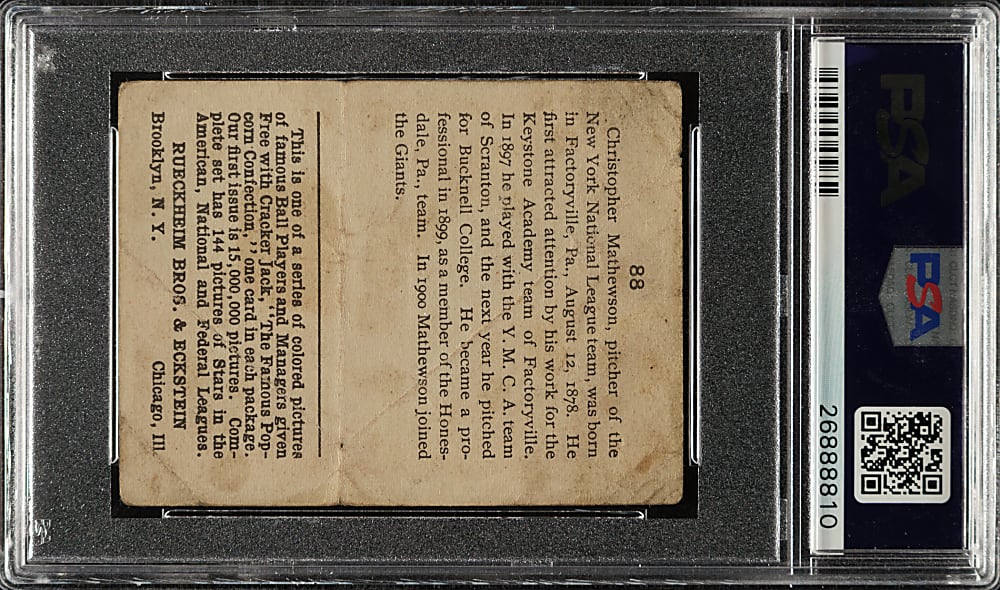 PSA
PSA
26888810
88
Christopher Mathewson, pitcher of the
New York National League team, was born
in Factoryville, Pa., August 12, 1878. He
first attracted attention by his work for the
Keystone Academy team of Factoryville.
In 1897 he played with the Y. M. C. A. team
of Scranton, and the next year he pitched
for Bucknell College. He became a pro-
fessional in 1899, as a member of the Hones-
dale, Pa., team. In 1900 Mathewson joined
the Giants.
This is one of a series of colored pictures
of famous Ball Players and Managers given
Free with Cracker Jack, "The Famous Pop-
corn Confection," one card in each package.
Our first issue is 15,000,000 pictures. Com-
plete set has 144 pictures of Stars in the
American, National and Federal Leagues.
RUECKHEIM BROS. & ECKSTEIN
Brooklyn, N. Y. Chicago, Ill